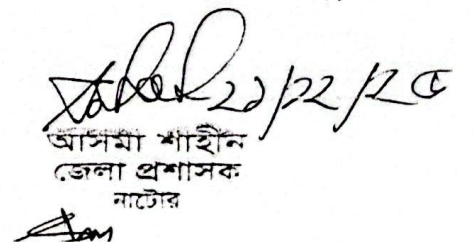 ২১/১২/২৫
আসমা শাহীন
জেলা প্রশাসক
নাটোর